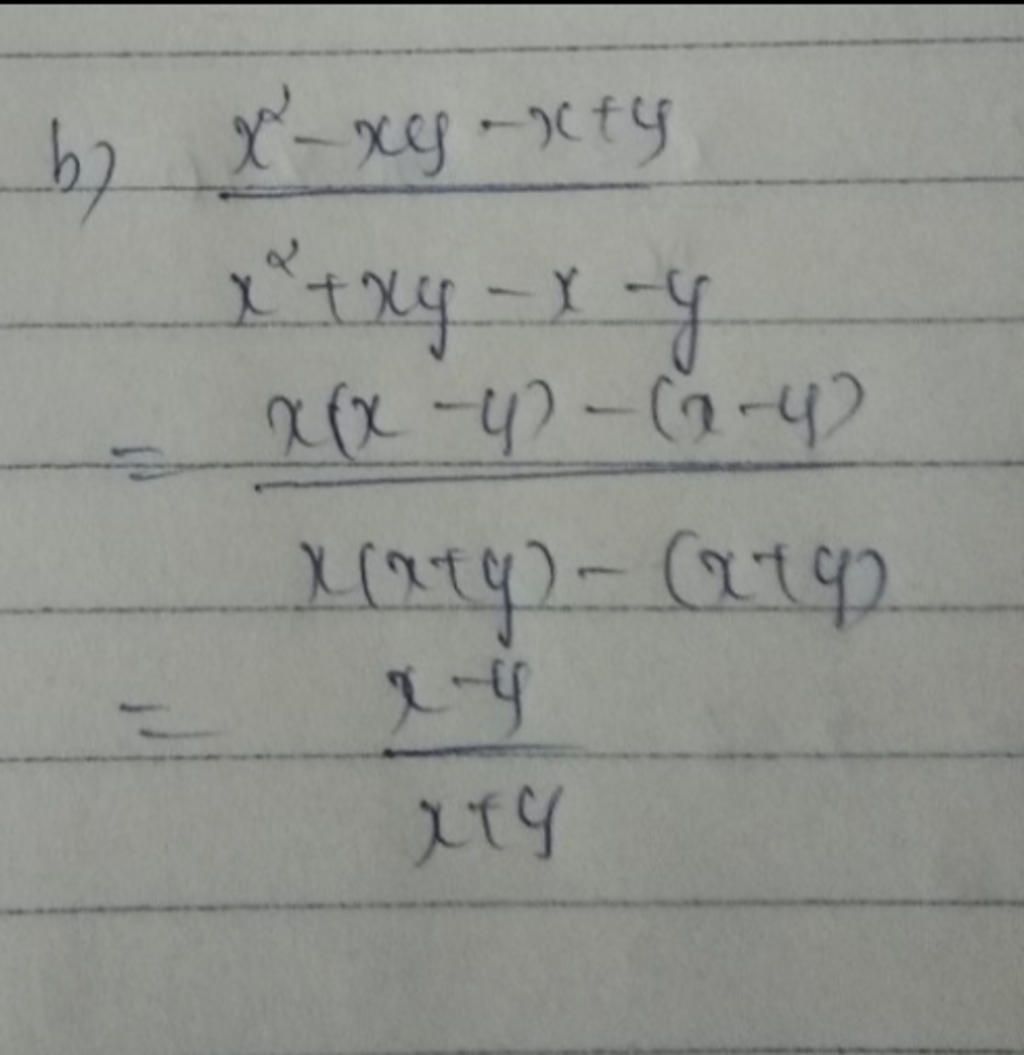 b) x² - xy - x + y
x² + xy - x - y
= x(x - y) - (x - y)
x(x + y) - (x + y)
= x - y
x + y